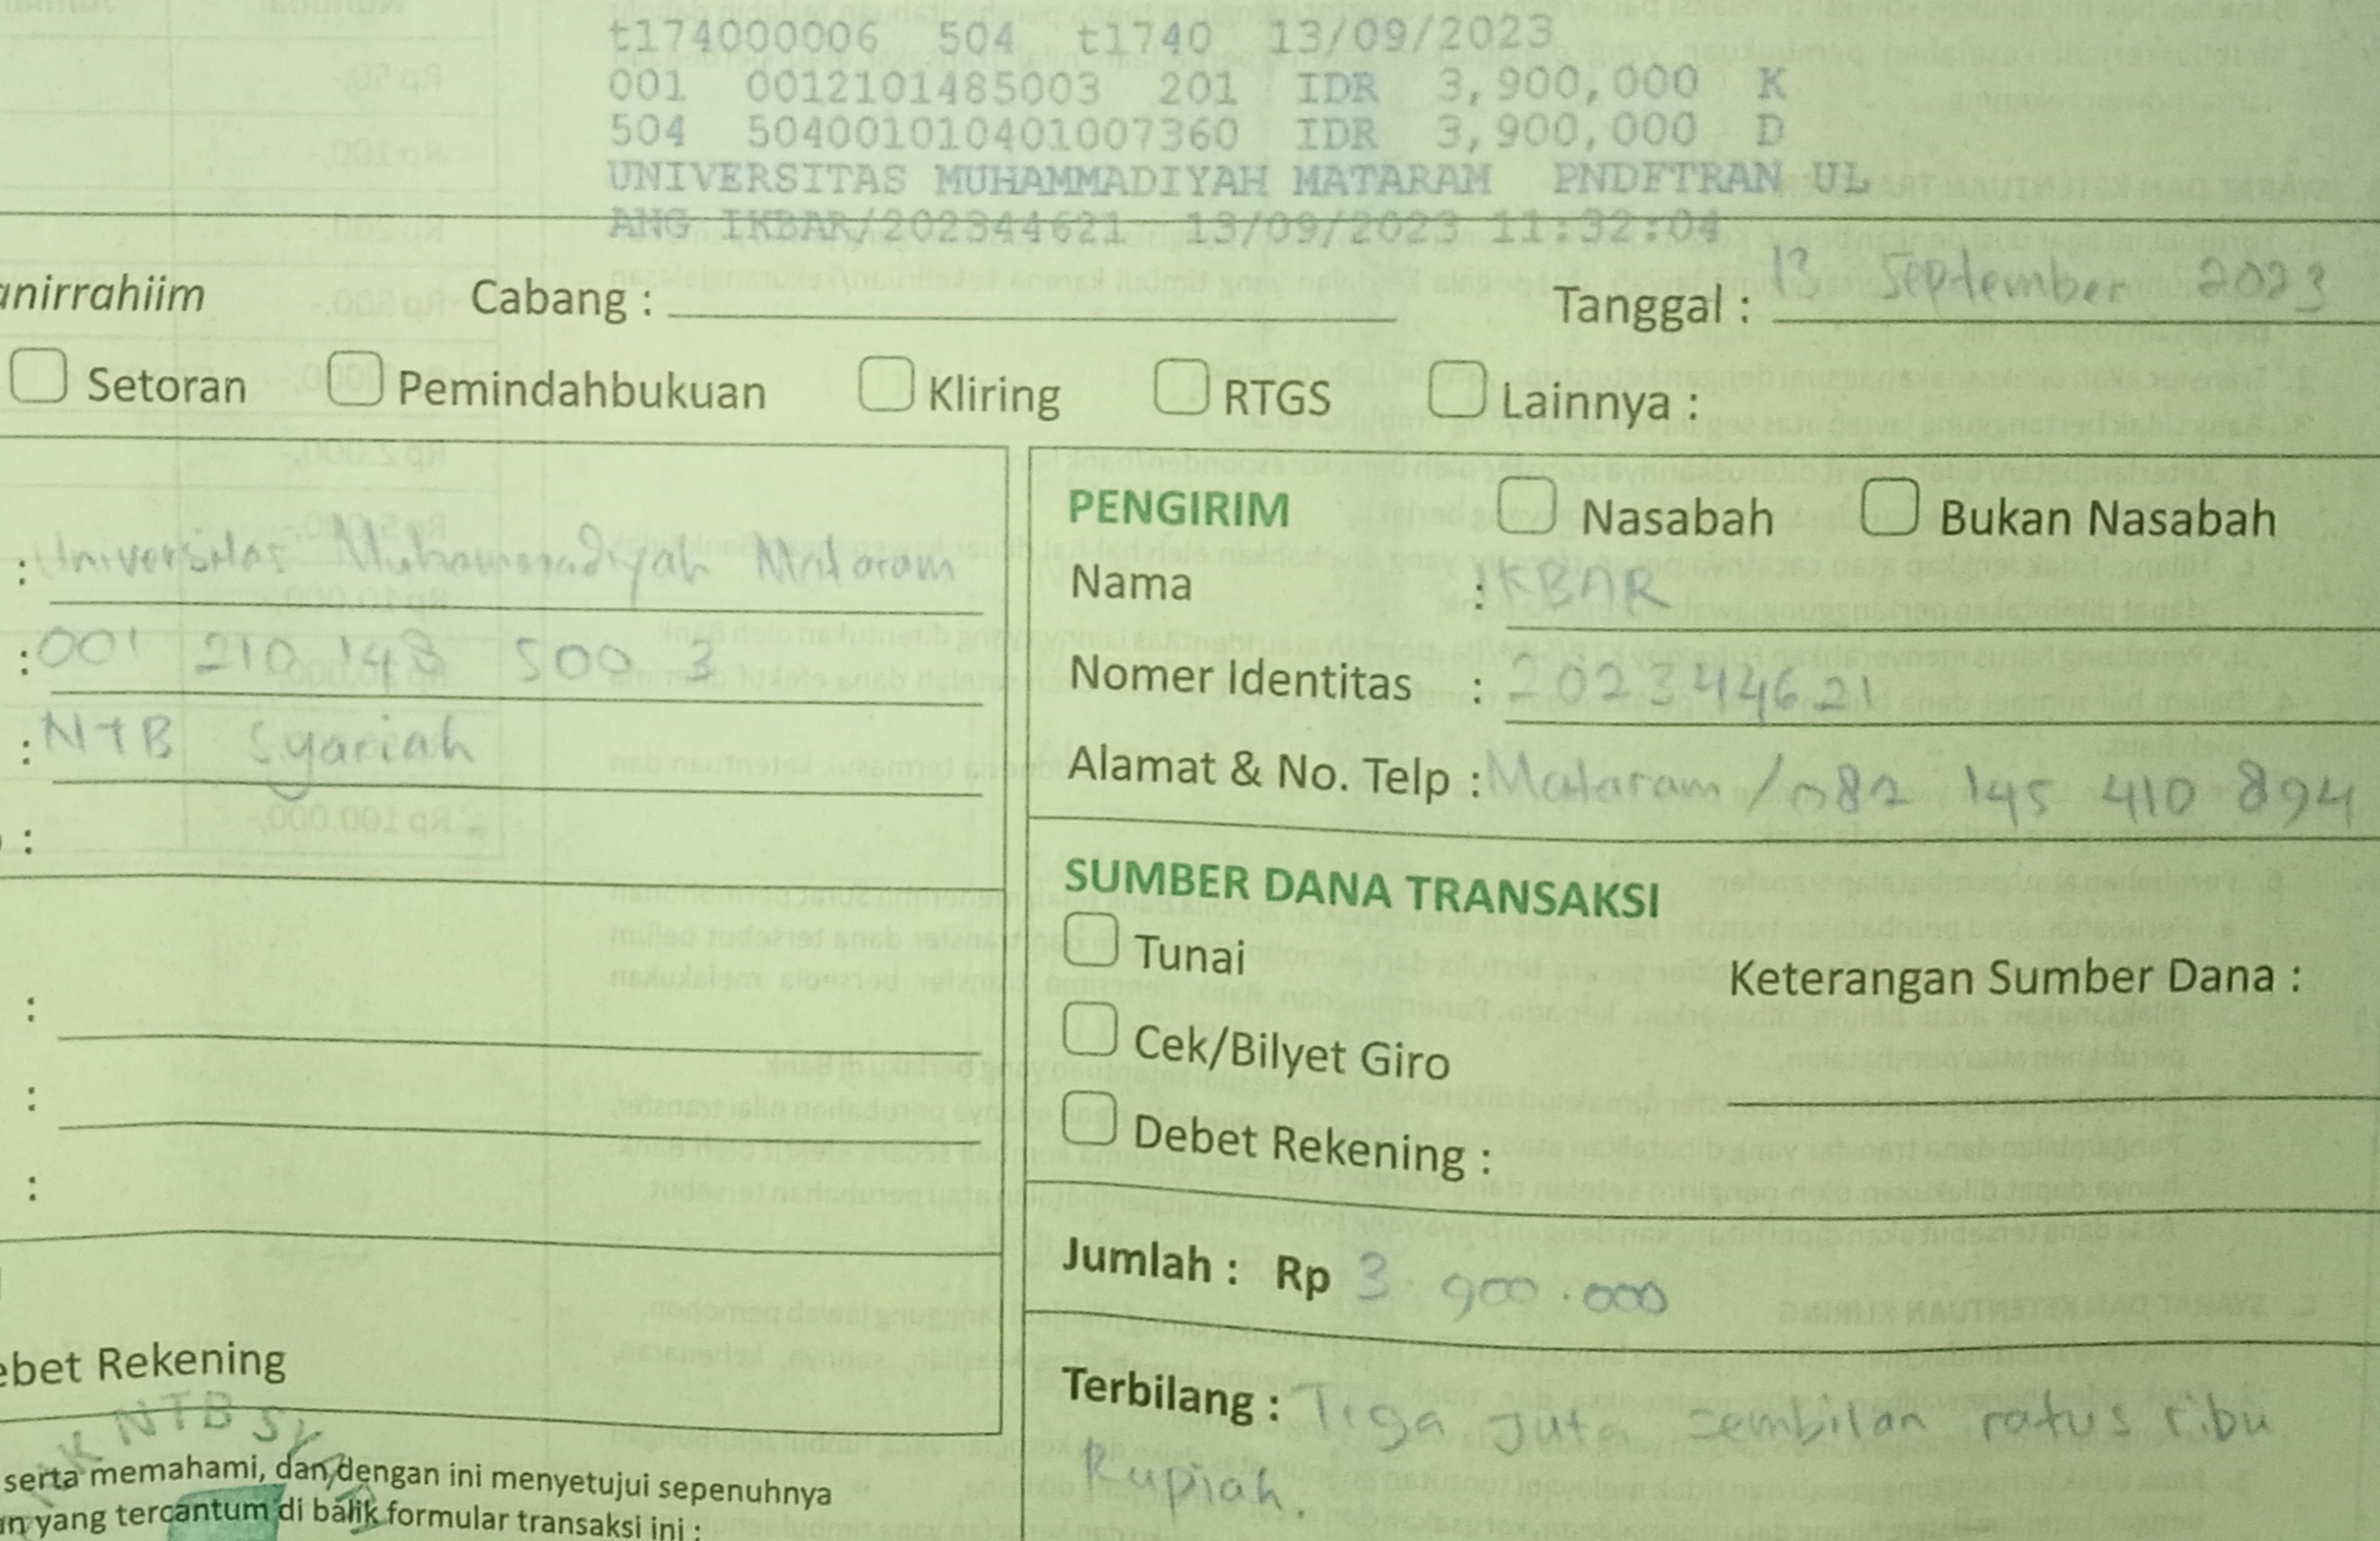 t174000006 504 t1740 13/09/2023
001 0012101485003 201 IDR 3,900,000 K
504 504001010401007360 IDR 3,900,000 D
UNIVERSITAS MUHAMMADIYAH MATARAM PNDFTRAN UL
ANG IKBAR/202344621 13/09/2023 11:32:04
anirrahiim Cabang : Tanggal : 13 September 2023
Setoran Pemindahbukuan Kliring RTGS Lainnya :
: Universitas Muhammadiyah Mataram
: 001 210 148 500 3
: NTB Syariah
:
:
:
:
ebet Rekening
NTB SY
serta memahami, dan dengan ini menyetujui sepenuhnya
an yang tercantum di balik formular transaksi ini :
PENGIRIM Nasabah Bukan Nasabah
Nama : IKBAR
Nomer Identitas : 202344621
Alamat & No. Telp : Mataram / 082 145 410 894
SUMBER DANA TRANSAKSI
Tunai
Keterangan Sumber Dana :
Cek/Bilyet Giro
Debet Rekening :
Jumlah : Rp 3.900.000
Terbilang : Tiga Juta sembilan ratus ribu
Rupiah.